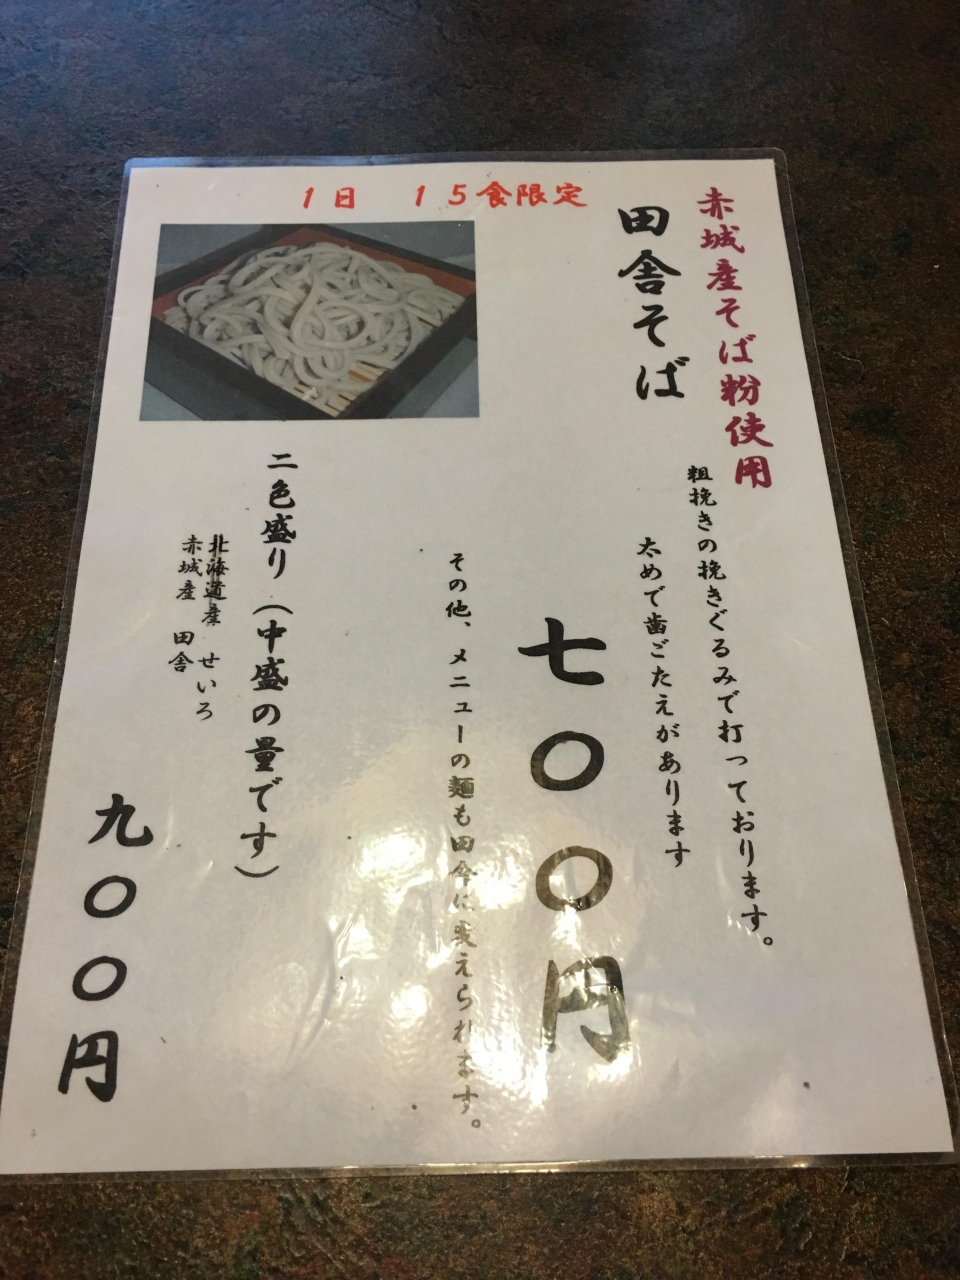 1日 15食限定
赤城産そば粉使用
田舎そば
粗挽きの挽きぐるみで打っております。
太めで歯ごたえがあります
七〇〇円
その他、メニューの麺も田舎に変えられます。
二色盛り(中盛の量です)
北海道産 せいろ
赤城産 田舎
九〇〇円